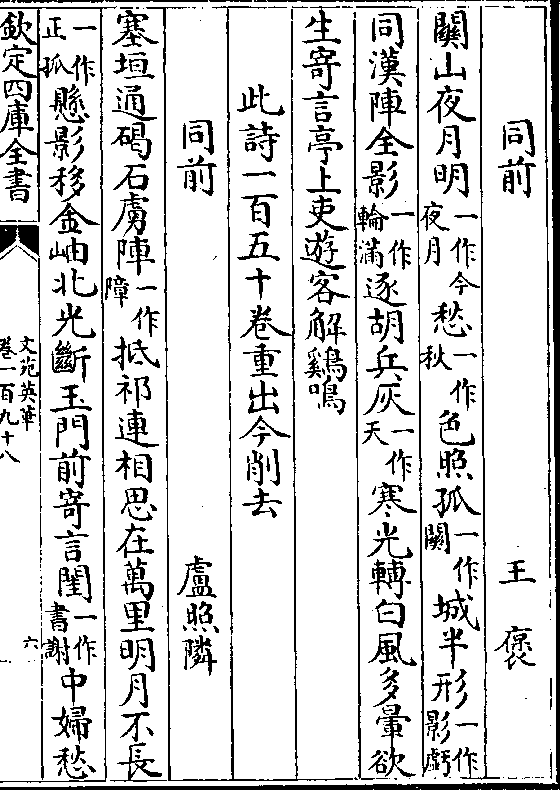 同前 王褒
關山夜月明一作今夜月愁一作秋色照孤一作關城半形一作影虧
同漢陣全影一作輪滿逐胡兵灰一作天寒光轉白風多暈欲
生寄言亭上吏遊客解鷄鳴
此詩一百五十卷重出今削去
同前 盧照隣
塞垣通碣石虜陣一作障抵祁連相思在萬里明月不長
一作正孤懸影移金岫北光斷玉門前寄言閨一作書謝中婦愁
欽定四庫全書
文苑英華
卷一百九十八
六